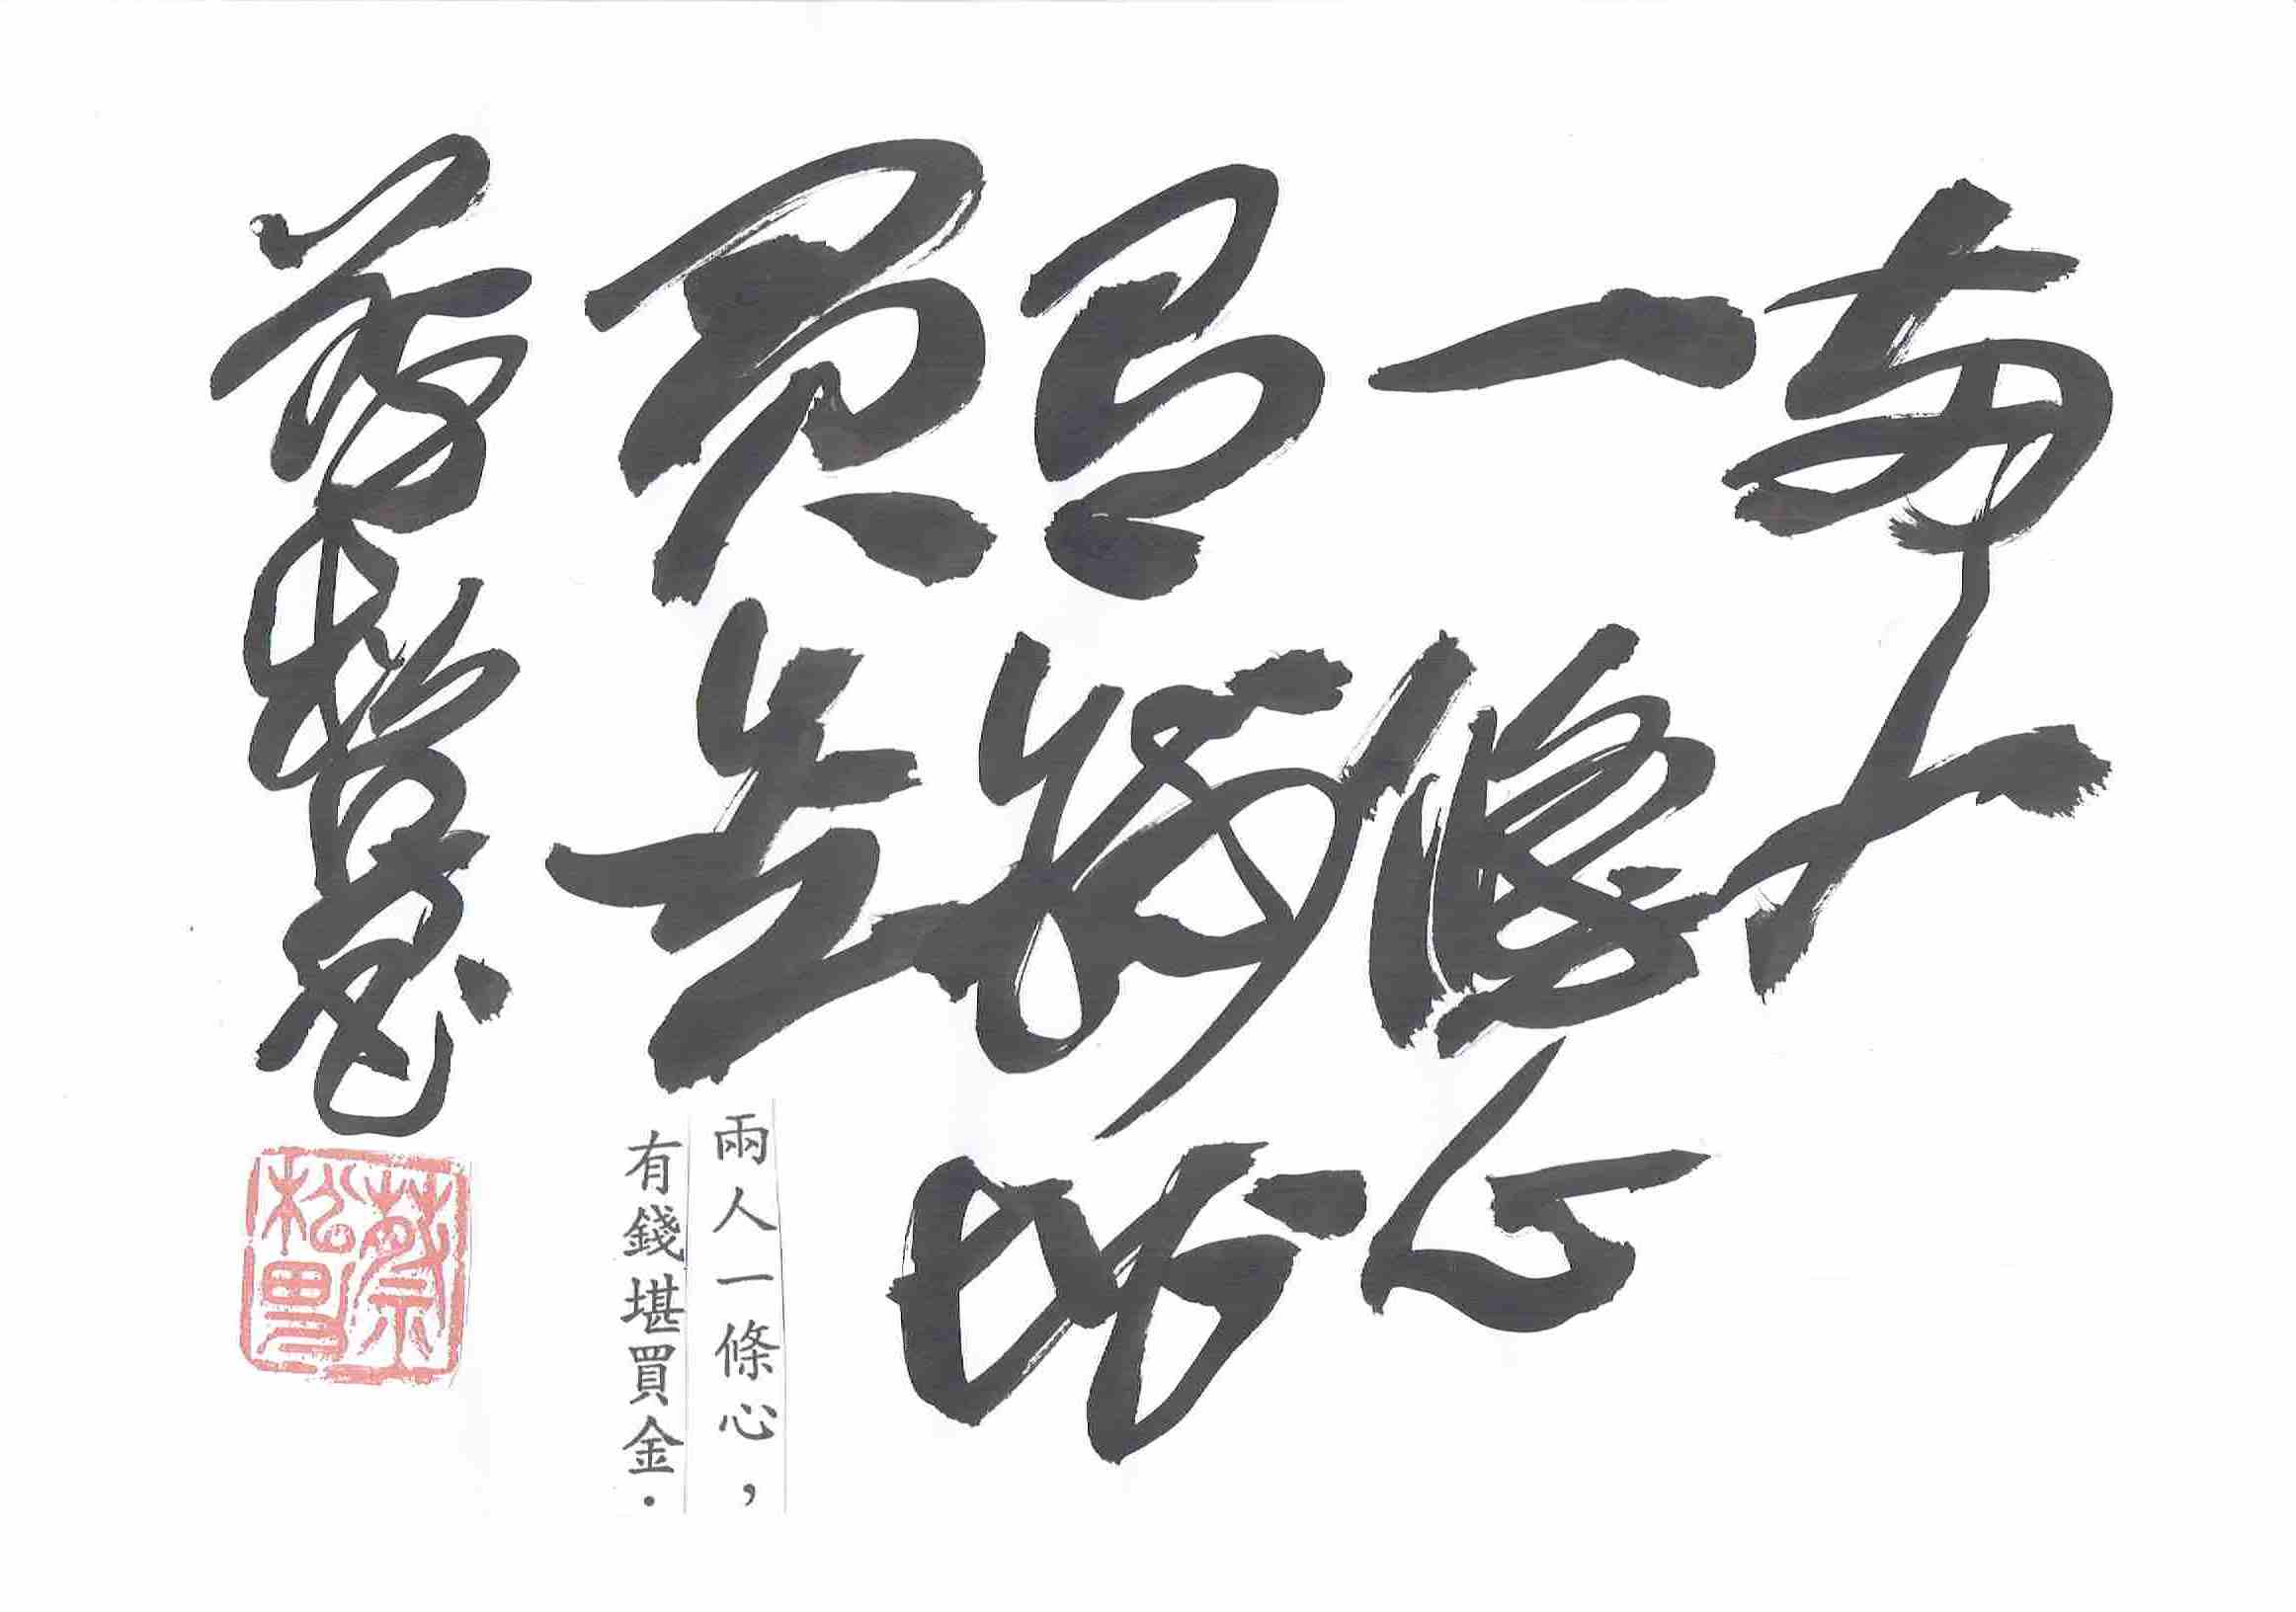 兩人
一條心
有錢堪
買金
兩人一條心，
有錢堪買金．
蔡松男
蔡松男